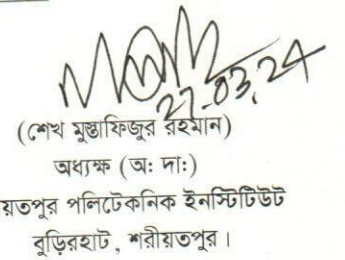 27-03,24
(শেখ মুস্তাফিজুর রহমান)
অধ্যক্ষ (অ: দা:)
য়তপুর পলিটেকনিক ইনস্টিটিউট
বুড়িরহাট, শরীয়তপুর।